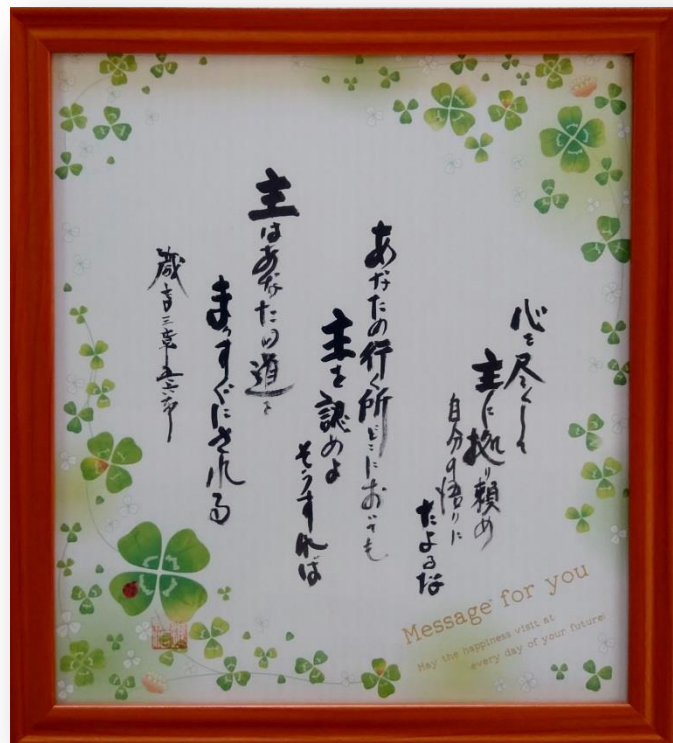 心を尽くして
主に拠り頼め
自分の悟りに
たよるな
あなたの行く所どこにおいても
主を認めよ
そうすれば
主はあなたの道を
まっすぐにされる
箴言三章五六節
Message for you
May the happiness visit at
every day of your future!